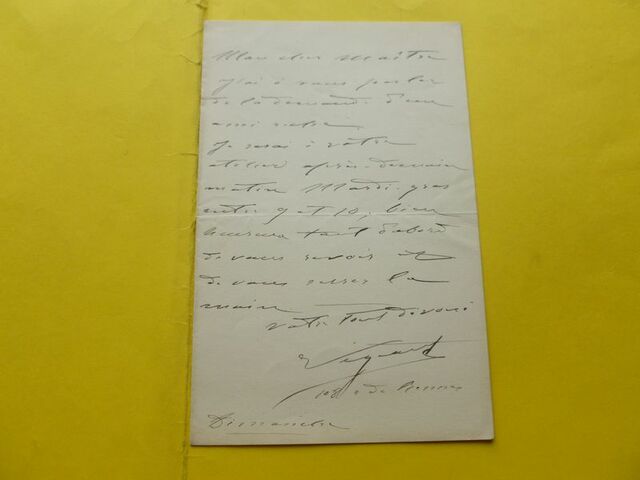 Mon cher Maître
J'ai à vous parler
de la demande d'un
ami
Je serai à votre
atelier après-demain
matin Mardi-gras
entre 9 et 10, bien
heureux tout d'abord
de vous revoir et
de vous serrer la
main
Votre tout dévoué
108 r de Rennes
Dimanche